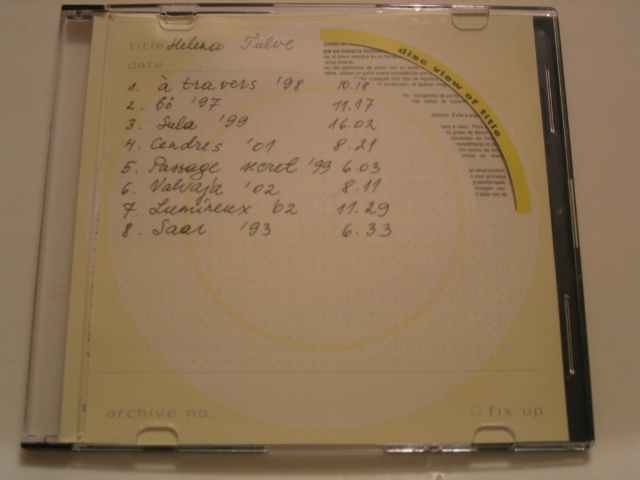 title Helena Tulve
date
1. à travers '98 10.18
2. öö '97 11.17
3. Sula '99 16.02
4. Cendres '01 8.21
5. Passage secret '99 6.03
6. Valvaja '02 8.11
7. Lumineux '02 11.29
8. Saar '93 6.33
disc view of title
archive no:
fix up